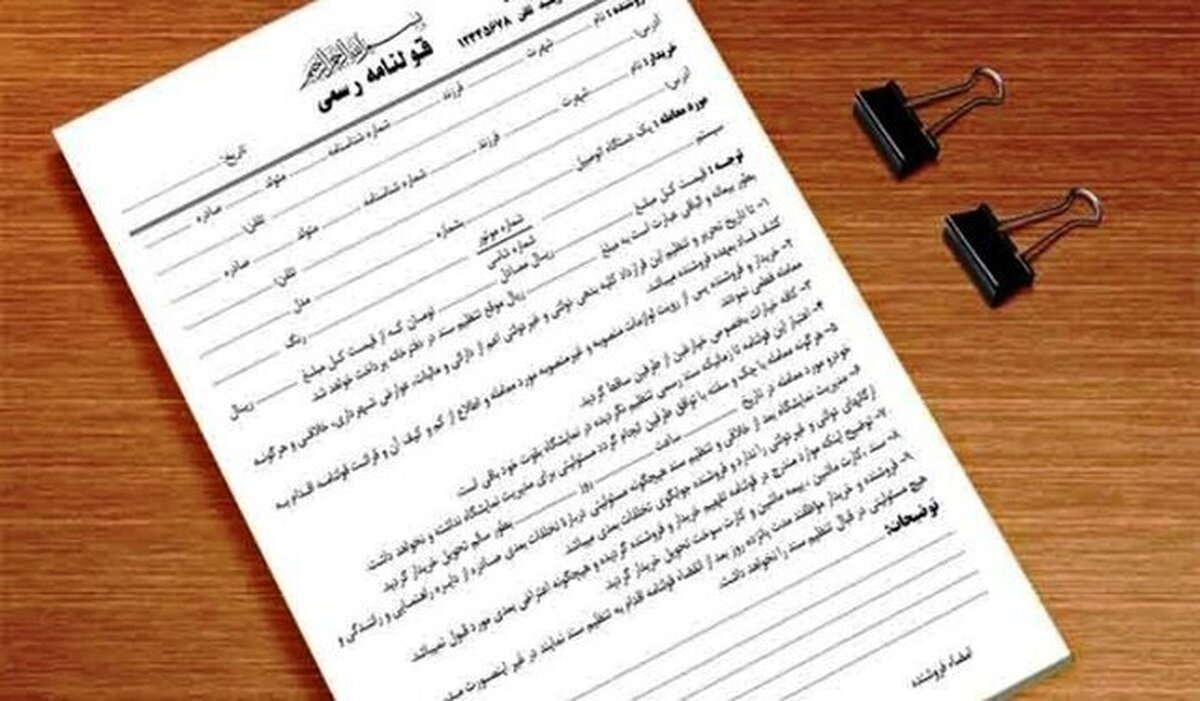 بسم الله الرحمن الرحیم
قولنامه رسمی
تلفن ۱۲۳۴۵۶۷۸
تاریخ:
فروشنده: نام شهرت فرزند شماره شناسنامه متولد صادره
آدرس: تلفن:
خریدار: نام شهرت فرزند شماره شناسنامه متولد صادره
آدرس: تلفن:
مورد معامله: یک دستگاه اتومبیل بشماره مدل
سیستم شماره موتور شماره شاسی رنگ
توجه: قیمت کل مبلغ ریال معادل تومان که از قیمت کل مبلغ ریال
بطور بیعانه و الباقی عبارت است به مبلغ ریال موقع تنظیم سند در دفترخانه پرداخت خواهد شد
۱- تا تاریخ تحریر و تنظیم این قرارداد کلیه بدهی دولتی و غیردولتی اعم از دارائی و مالیات، عوارض شهرداری، خلافی و هرگونه
کشف فساد بعهده فروشنده میباشد
۲- خریدار و فروشنده پس از رویت لوازمات منصوبه و غیرمنصوبه مورد معامله و اطلاع از کم و کیف آن و قرائت قولنامه اقدام به
معامله قطعی نمودند
۳- کافه خیارات بالخصوص خیار غبن از طرفین ساقط گردید
۴- اعتبار این قولنامه تا زمانیکه سند رسمی تنظیم نگردیده در نمایشگاه بقوت خود باقی است
۵- هرگونه معامله با چک و سفته با توافق طرفین انجام گردد مسئولیتی برای مدیریت نمایشگاه نداشته و نخواهد داشت
خودرو مورد معامله در تاریخ ساعت روز بطور سالم تحویل خریدار گردید
۶- مدیریت نمایشگاه بعد از خلافی و تنظیم سند هیچگونه مسئولیتی درباره تخلفات بعدی صادره از دایره راهنمایی و رانندگی و
ارگانهای دولتی و غیردولتی را ندارد و فروشنده جوابگوی تخلفات بعدی میباشد
۷- توضیح اینکه موارد مندرج در قولنامه تفهیم خریدار و فروشنده گردیده و هیچگونه اعتراضی بعدی مورد قبول نمیباشد
۸- سند، کارت ماشین، بیمه ماشین و کارت سوخت تحویل خریدار گردید
۹- فروشنده و خریدار موظفند مدت پانزده روز بعد از امضاء قولنامه اقدام به تنظیم سند نمایند در غیر اینصورت
هیچ مسئولیتی در قبال تنظیم سند را نخواهد داشت
توضیحات:
امضاء فروشنده